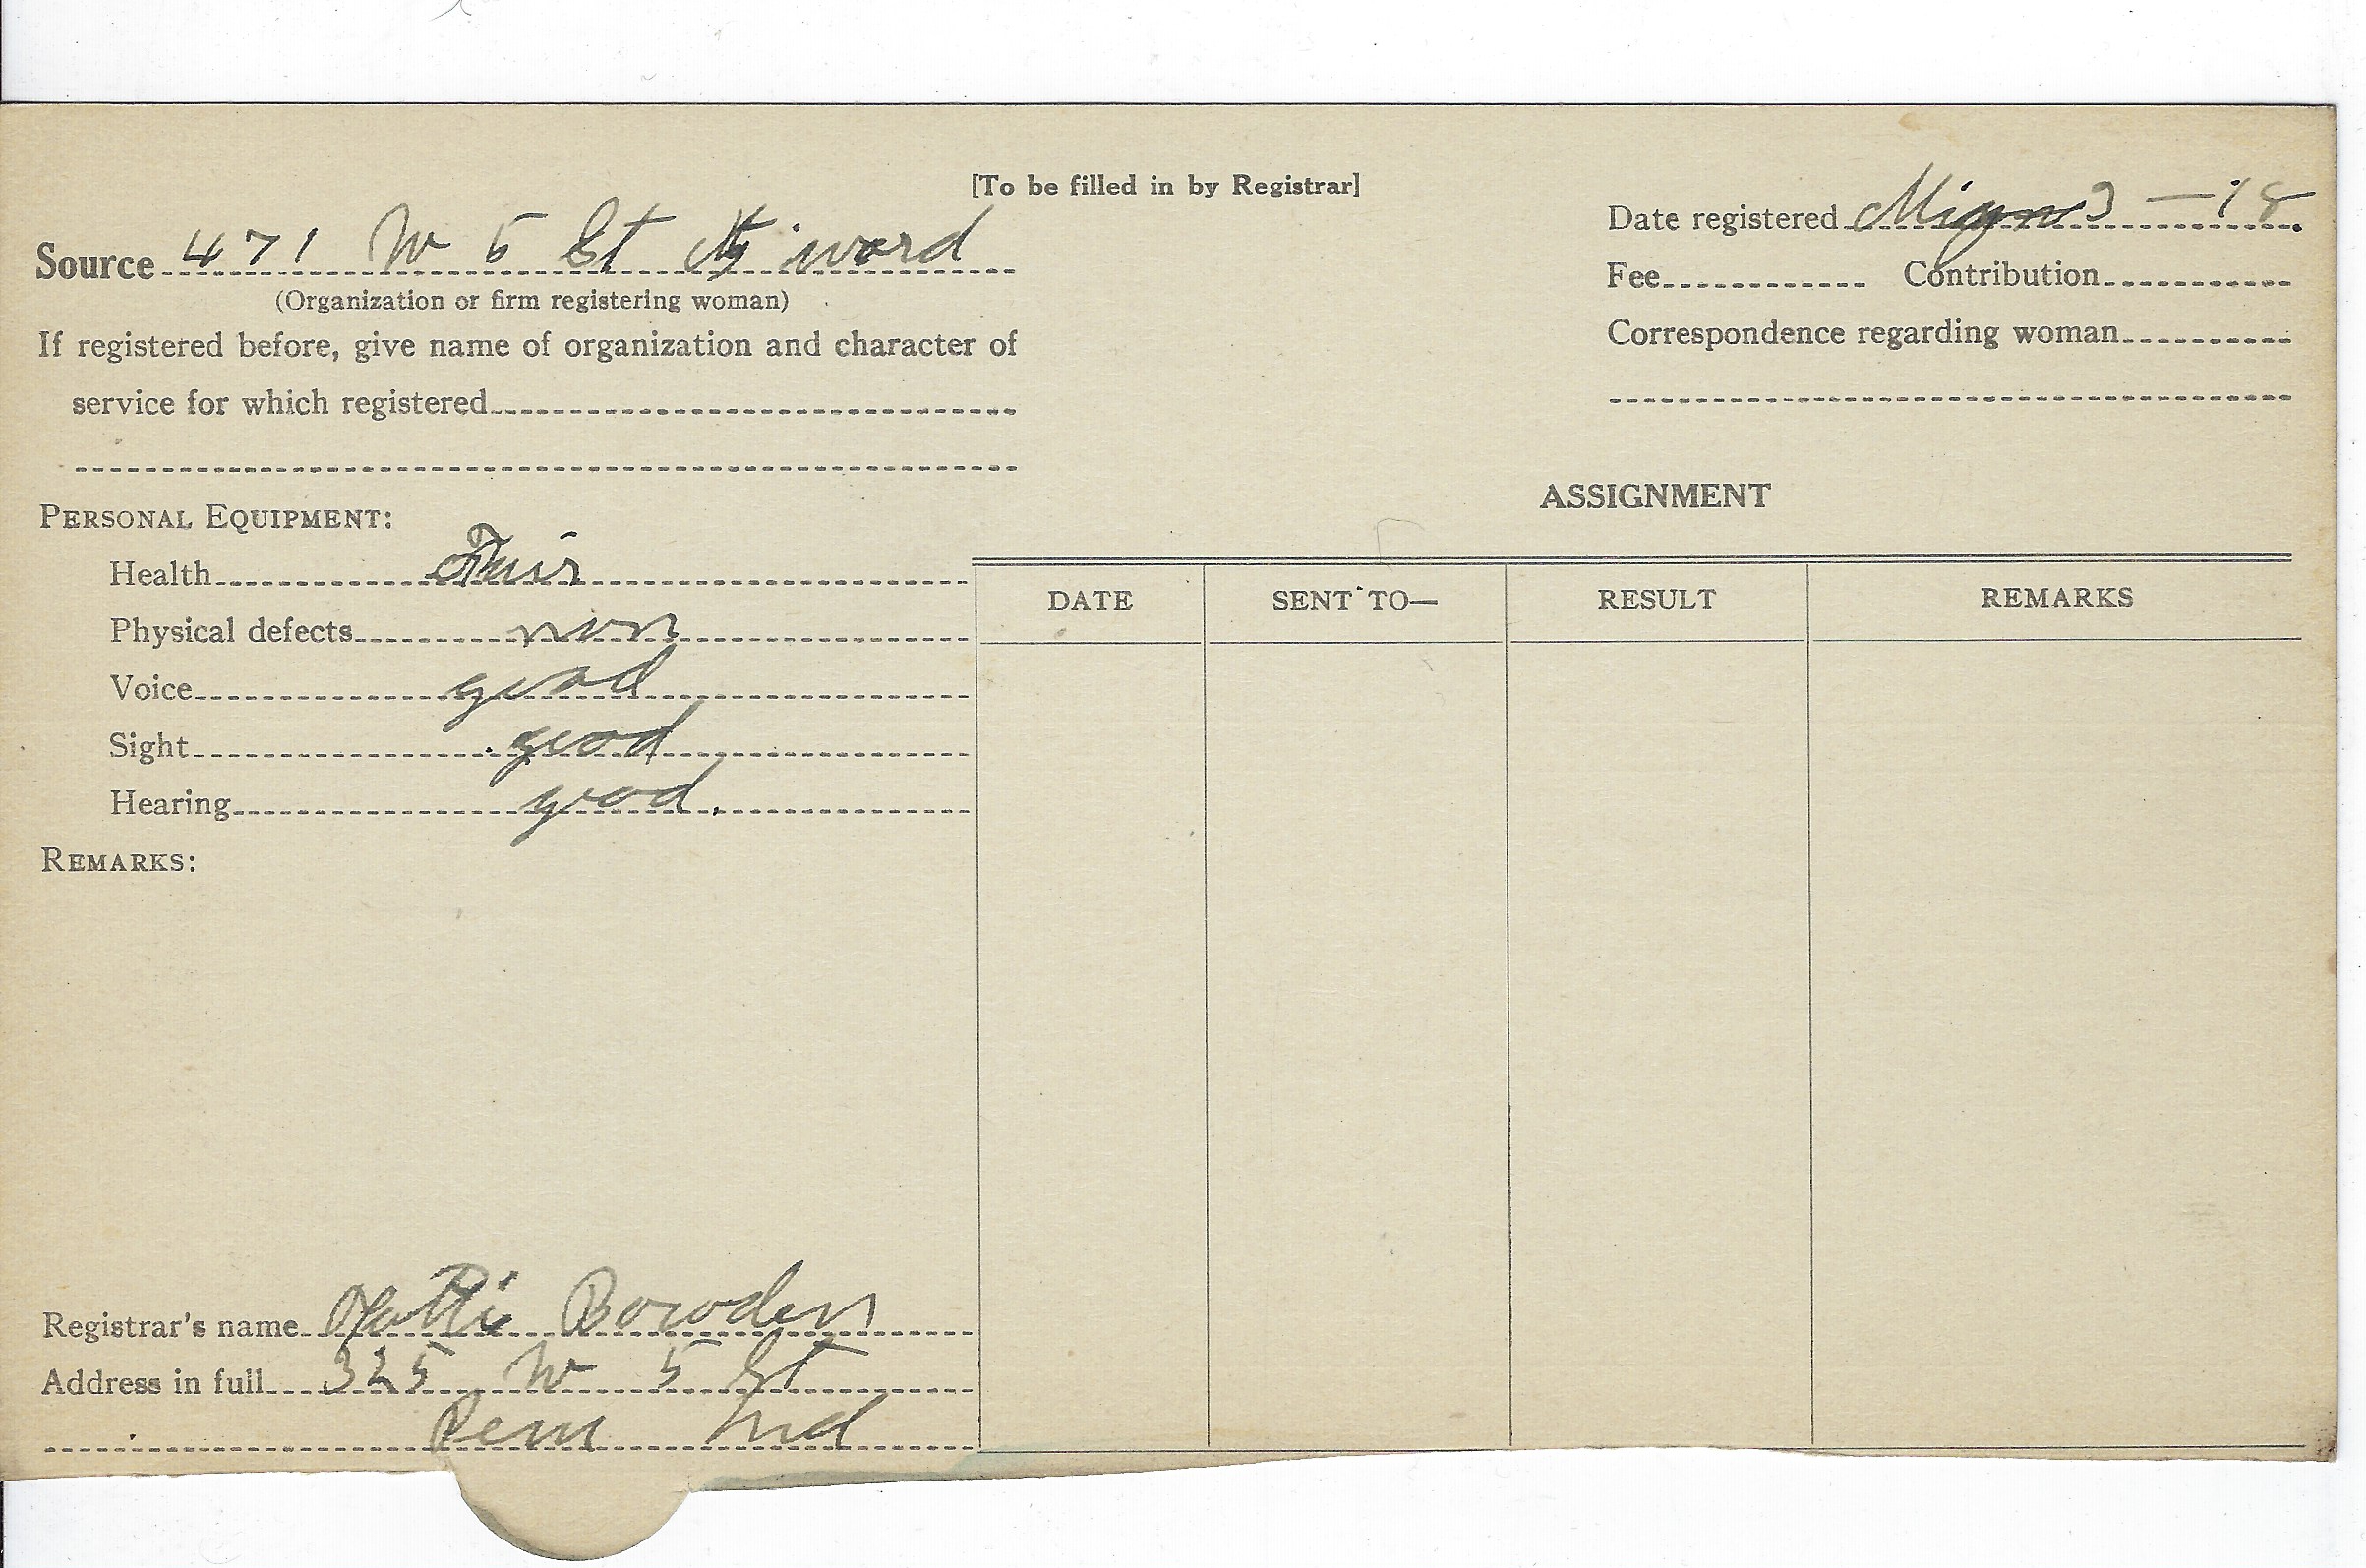 [To be filled in by Registrar]
Source 471 W 5 St ward
(Organization or firm registering woman)
If registered before, give name of organization and character of
service for which registered
Date registered 3 - 18
Fee Contribution
Correspondence regarding woman
PERSONAL EQUIPMENT:
Health Fair
Physical defects non
Voice good
Sight good
Hearing good.
REMARKS:
ASSIGNMENT
DATE SENT TO— RESULT REMARKS
Registrar's name Bowden
Address in full 325 W 5 St
Peru Ind